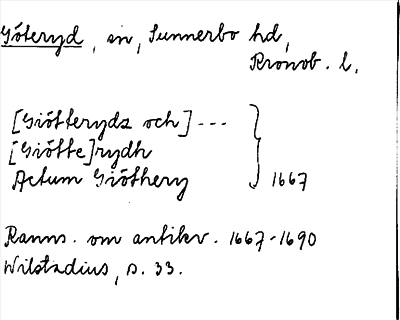 Göteryd, sn, Sunnerbo hd,
Kronob. l.
[Giötterydz och] ---
[Giötte]rydh
Actum Giöthery 1667
Ranns. om antikv. 1667-1690
Wilstadius, s. 33.